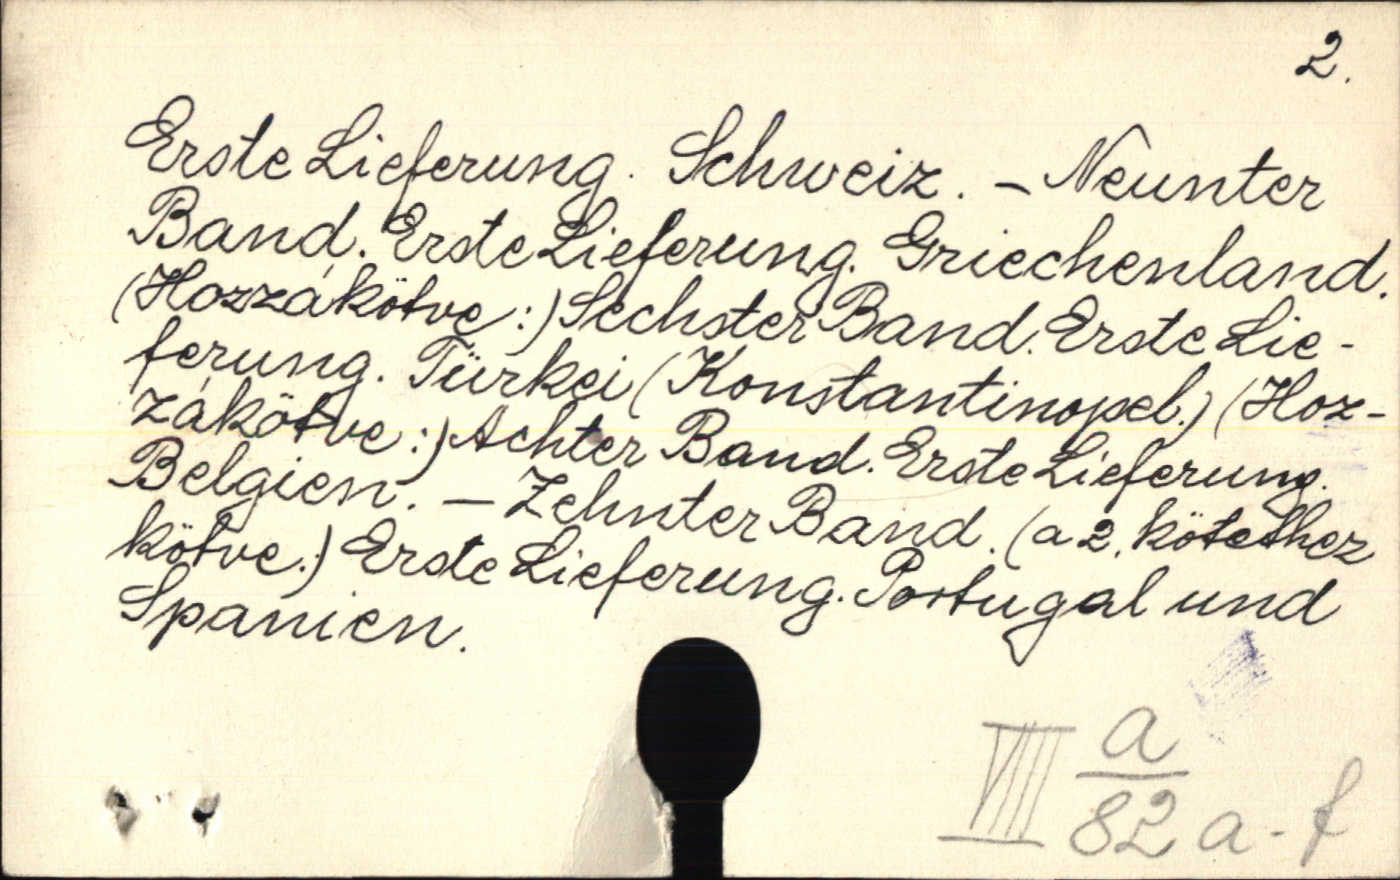 2.
Erste Lieferung. Schweiz. – Neunter
Band. Erste Lieferung. Griechenland.
(Hozzákötve:) Sechster Band. Erste Lie-
ferung. Türkei (Konstantinopel.) (Hoz-
zákötve:) Achter Band. Erste Lieferung.
Belgien. – Zehnter Band. (a 2. kötethez
kötve.) Erste Lieferung. Portugal und
Spanien.
VIII a
82 a - f